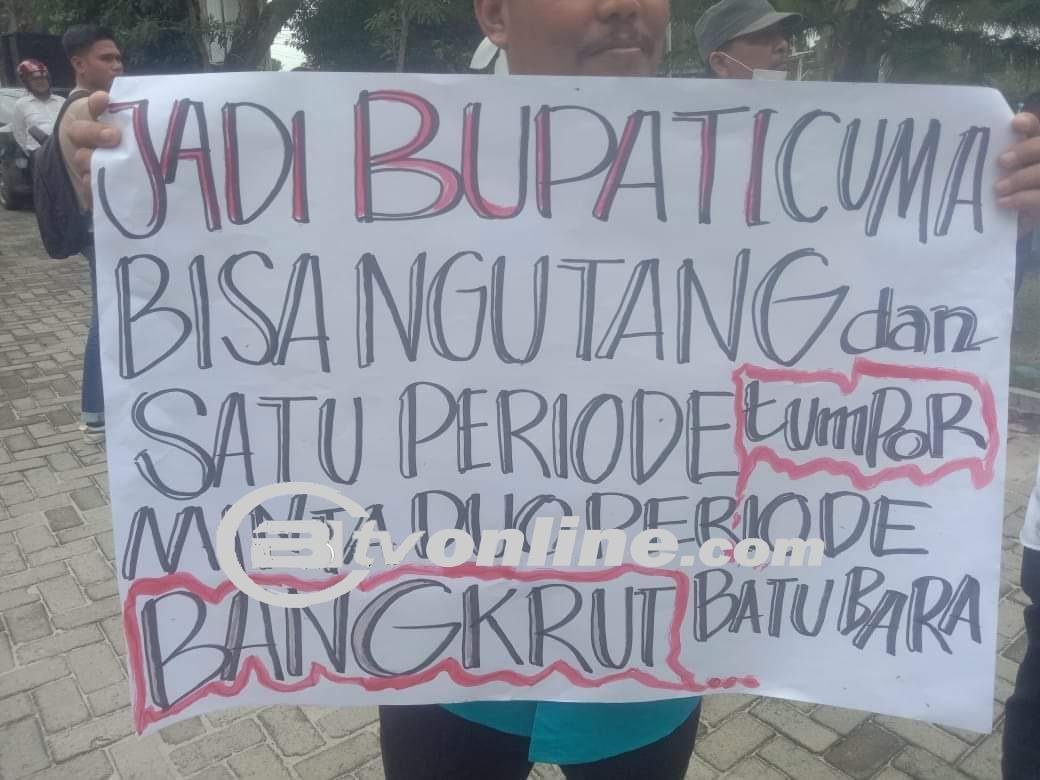 JADI BUPATI CUMA
BISA NGUTANG dan
SATU PERIODE tumPoR
MINTA DUO PERIODE
Btvonline.com
BANGKRUT BATU BARA
...